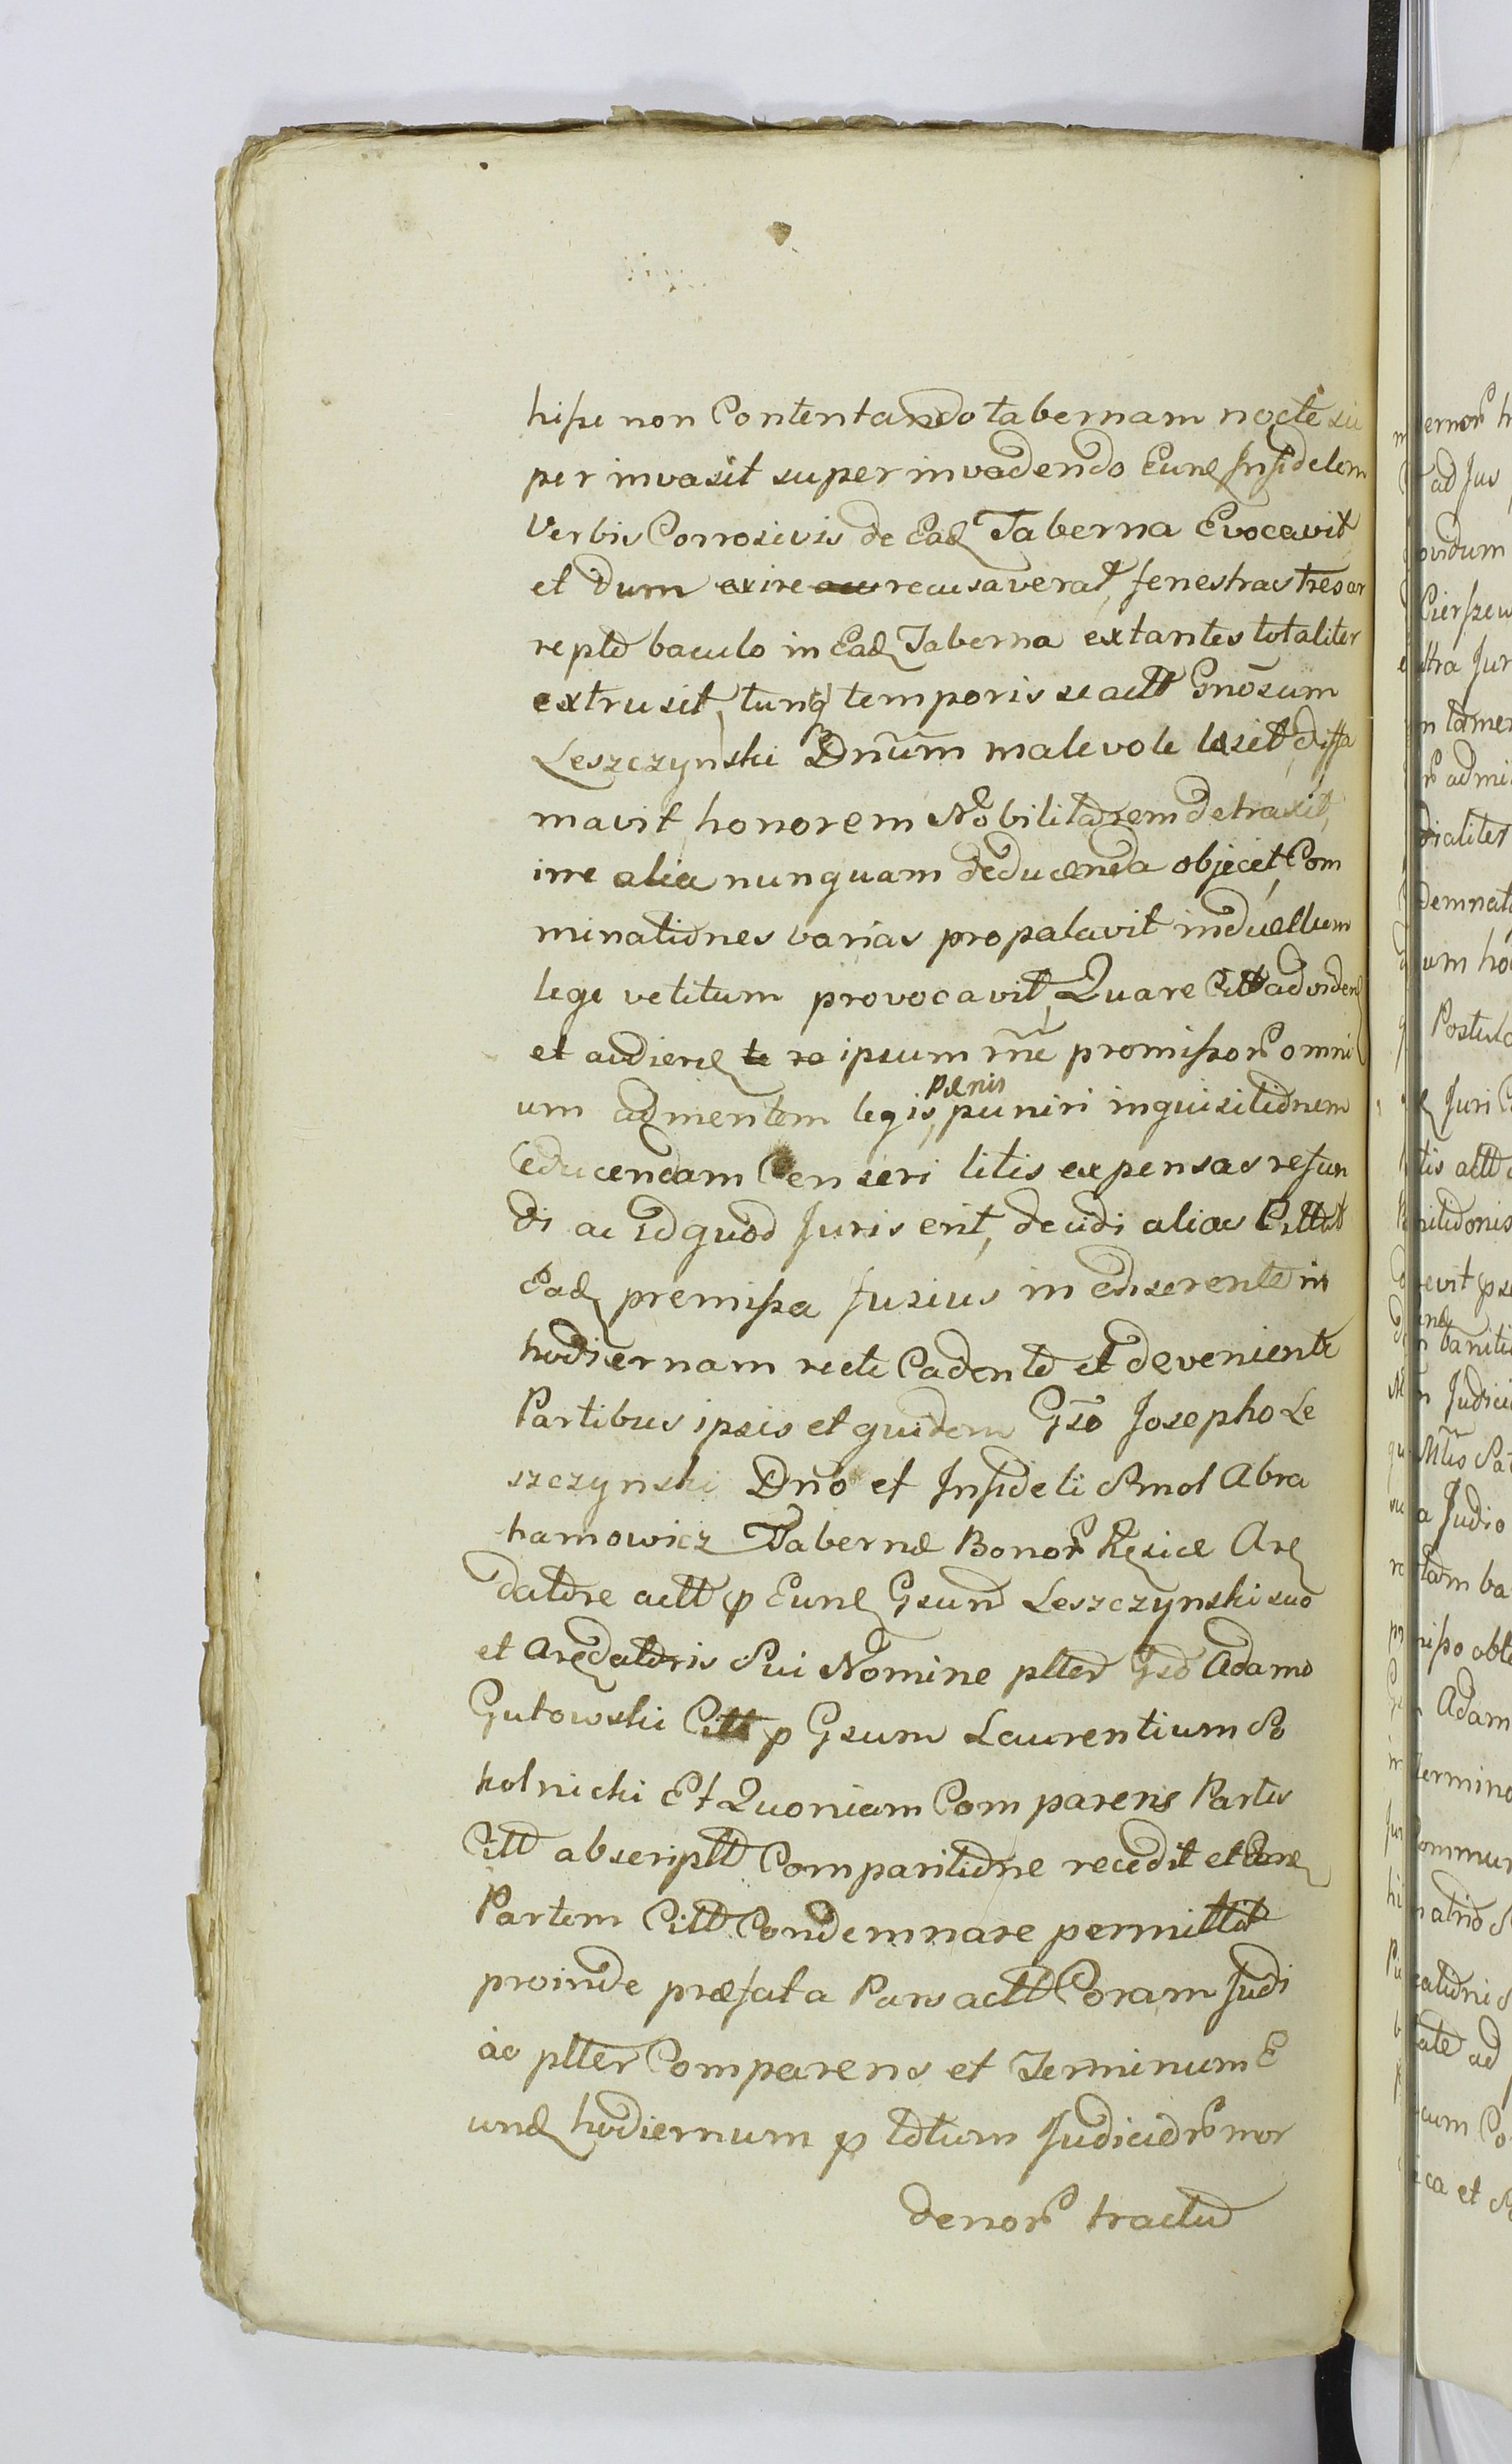 hisce non Contentando tabernam nocte su
per invasit super invadendo Eund Infidelem
Verbis Corrosivis de Ead Taberna Evocavit
et dum exire recusaverat, fenestras tres ar
repto baculo in Ead Taberna extantes totaliter
extrusit, tunq temporis se actt Gnosum
Leszczynski Dnum malevole lesit, diffa
mavit, honorem Nobilitarem detraxit,
irre alia nunquam deducenda objecit, Com
minationes varias propalavit in duellum
lege vetitum provocavit, Quare Citt ad viden
et audiend ipsum promissor omni
um ad mentem legis, pœnis puniri inquisitionem
educendam Censeri litis expensas refun
di ac id quod Juris erit, decidi alias Cittt
Ead premissa fusius in edisserente in
hodiernam recte Cadente et deveniente
Partibus ipsis et quidem Gso Josepho Le
szczynski Dno et Infideli Smol Abra
hamowicz Tabernæ Bonor Kęsice Are
datore actt p Eund Gsum Leszczynski suo
et Aredatoris Sui Nomine pltter Gso Adamo
Gutowski Citt p Gsum Laurentium So
kolnicki Et Quoniam Comparens Partis
Citt ab scriptt Comparitione recedit et Eand
Partem Citt Condemnare permittit
proinde præfata Pars actt Coram Judi
io pltter Comparens et Terminum E
und hodiernum p totum Judicior mor
denor tractu